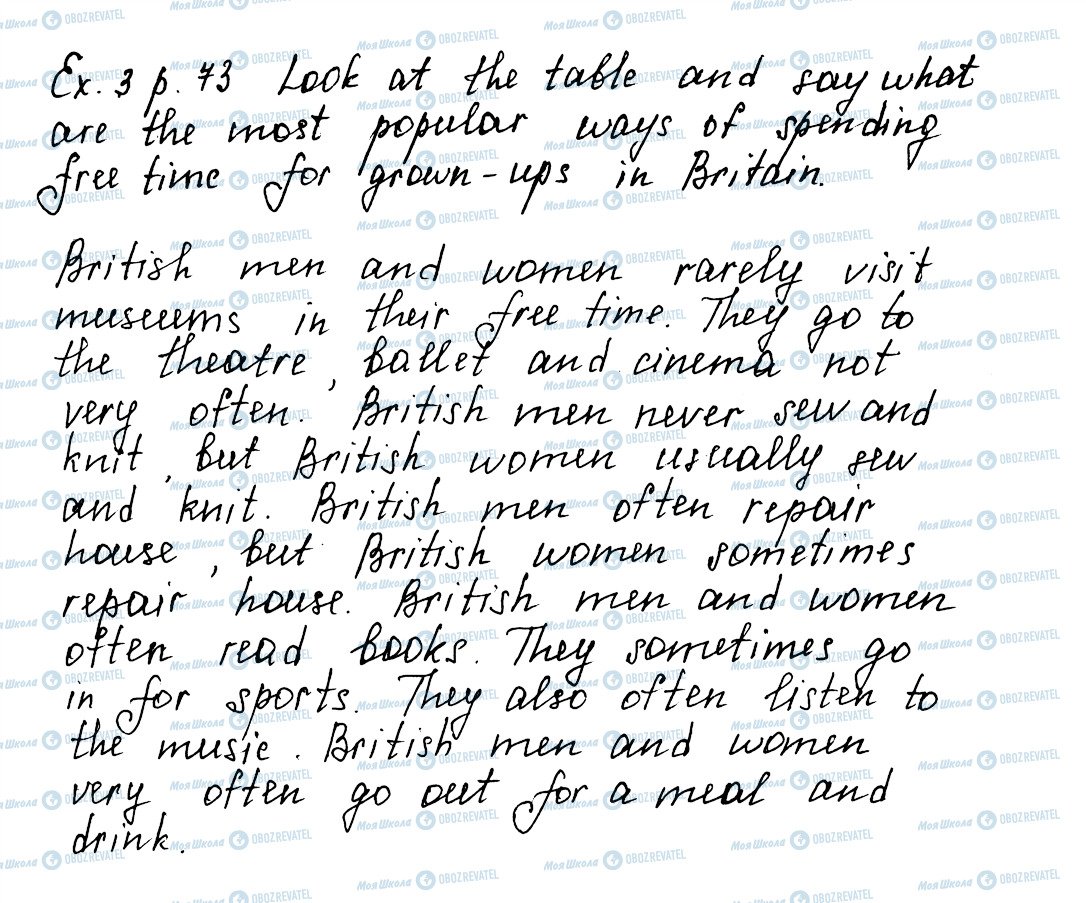 Ex. 3 p. 73 Look at the table and say what
are the most popular ways of spending
free time for grown-ups in Britain.
British men and women rarely visit
museums in their free time. They go to
the theatre, ballet and cinema not
very often. British men never sew and
knit, but British women usually sew
and knit. British men often repair
house, but British women sometimes
repair house. British men and women
often read books. They sometimes go
in for sports. They also often listen to
the music. British men and women
very often go out for a meal and
drink.